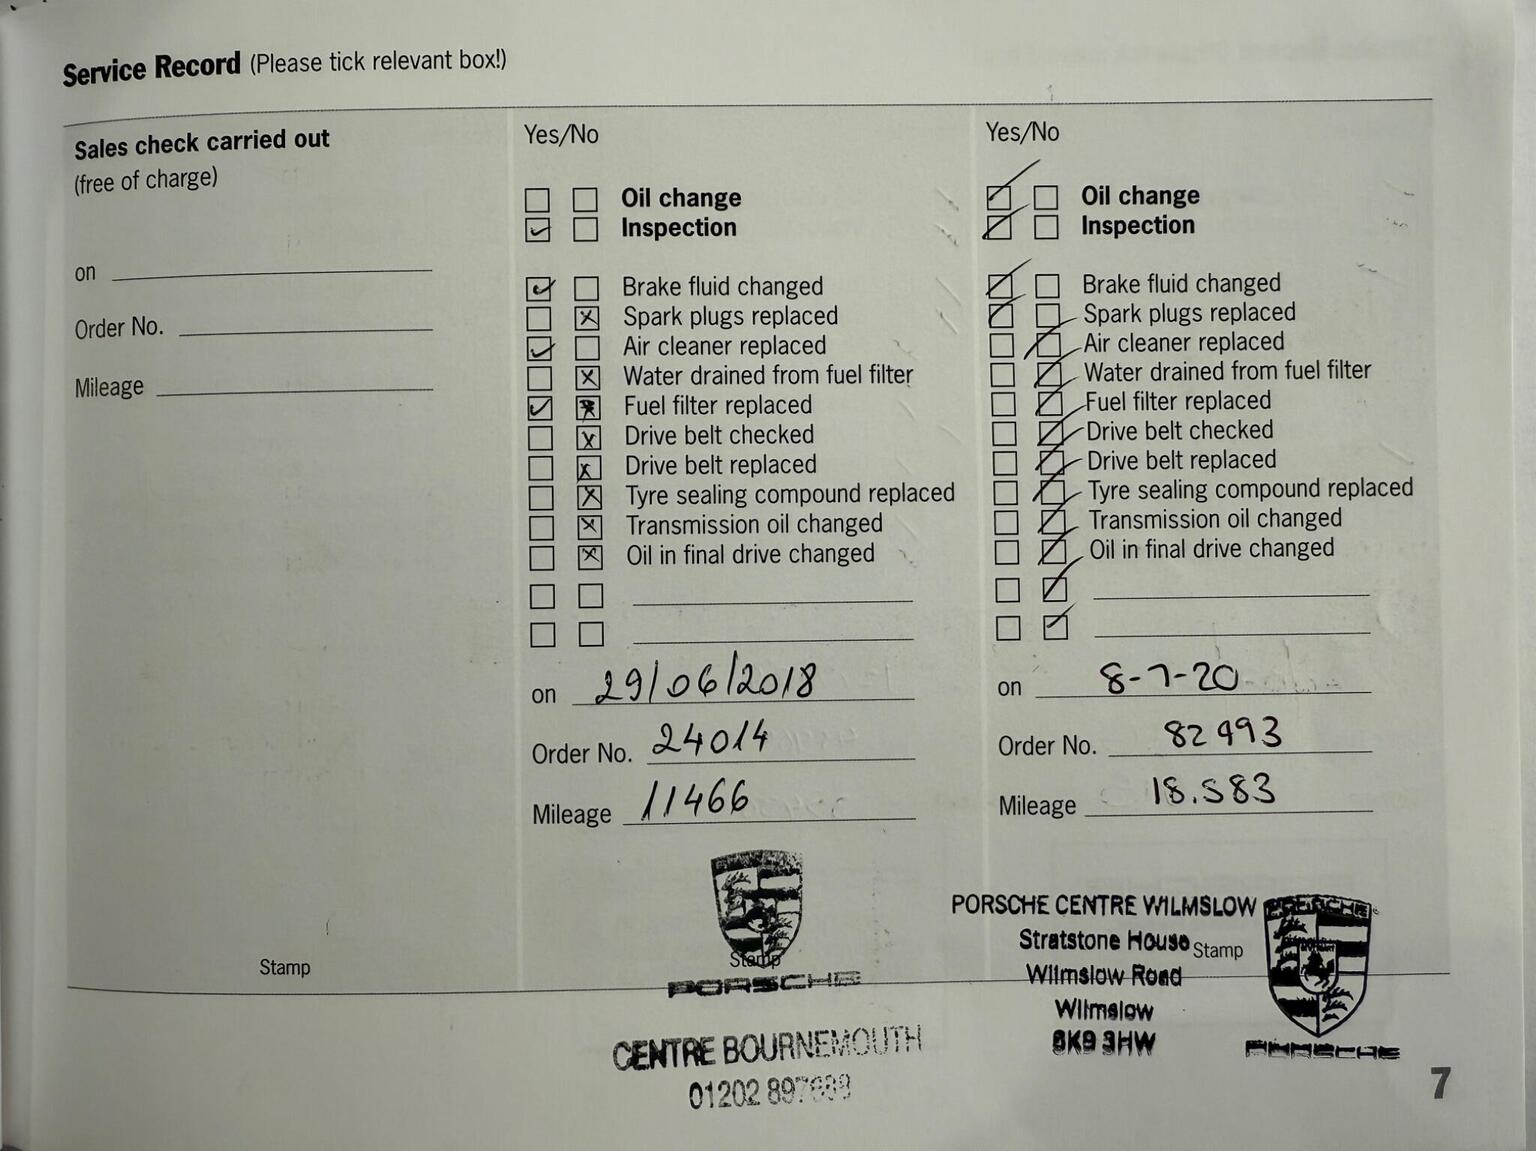 Service Record (Please tick relevant box!)
Sales check carried out
(free of charge)
on
Order No.
Mileage
Stamp
Yes/No
Oil change
Inspection
Brake fluid changed
Spark plugs replaced
Air cleaner replaced
Water drained from fuel filter
Fuel filter replaced
Drive belt checked
Drive belt replaced
Tyre sealing compound replaced
Transmission oil changed
Oil in final drive changed
on 29/06/2018
Order No. 24014
Mileage 11466
Stamp
PORSCHE
CENTRE BOURNEMOUTH
01202
Yes/No
Oil change
Inspection
Brake fluid changed
Spark plugs replaced
Air cleaner replaced
Water drained from fuel filter
Fuel filter replaced
Drive belt checked
Drive belt replaced
Tyre sealing compound replaced
Transmission oil changed
Oil in final drive changed
on 8-7-20
Order No. 82493
Mileage 18.583
PORSCHE CENTRE WILMSLOW
Stratstone House
Stamp
Wilmslow Road
Wilmslow
SK9 3HW
PORSCHE
PORSCHE
7